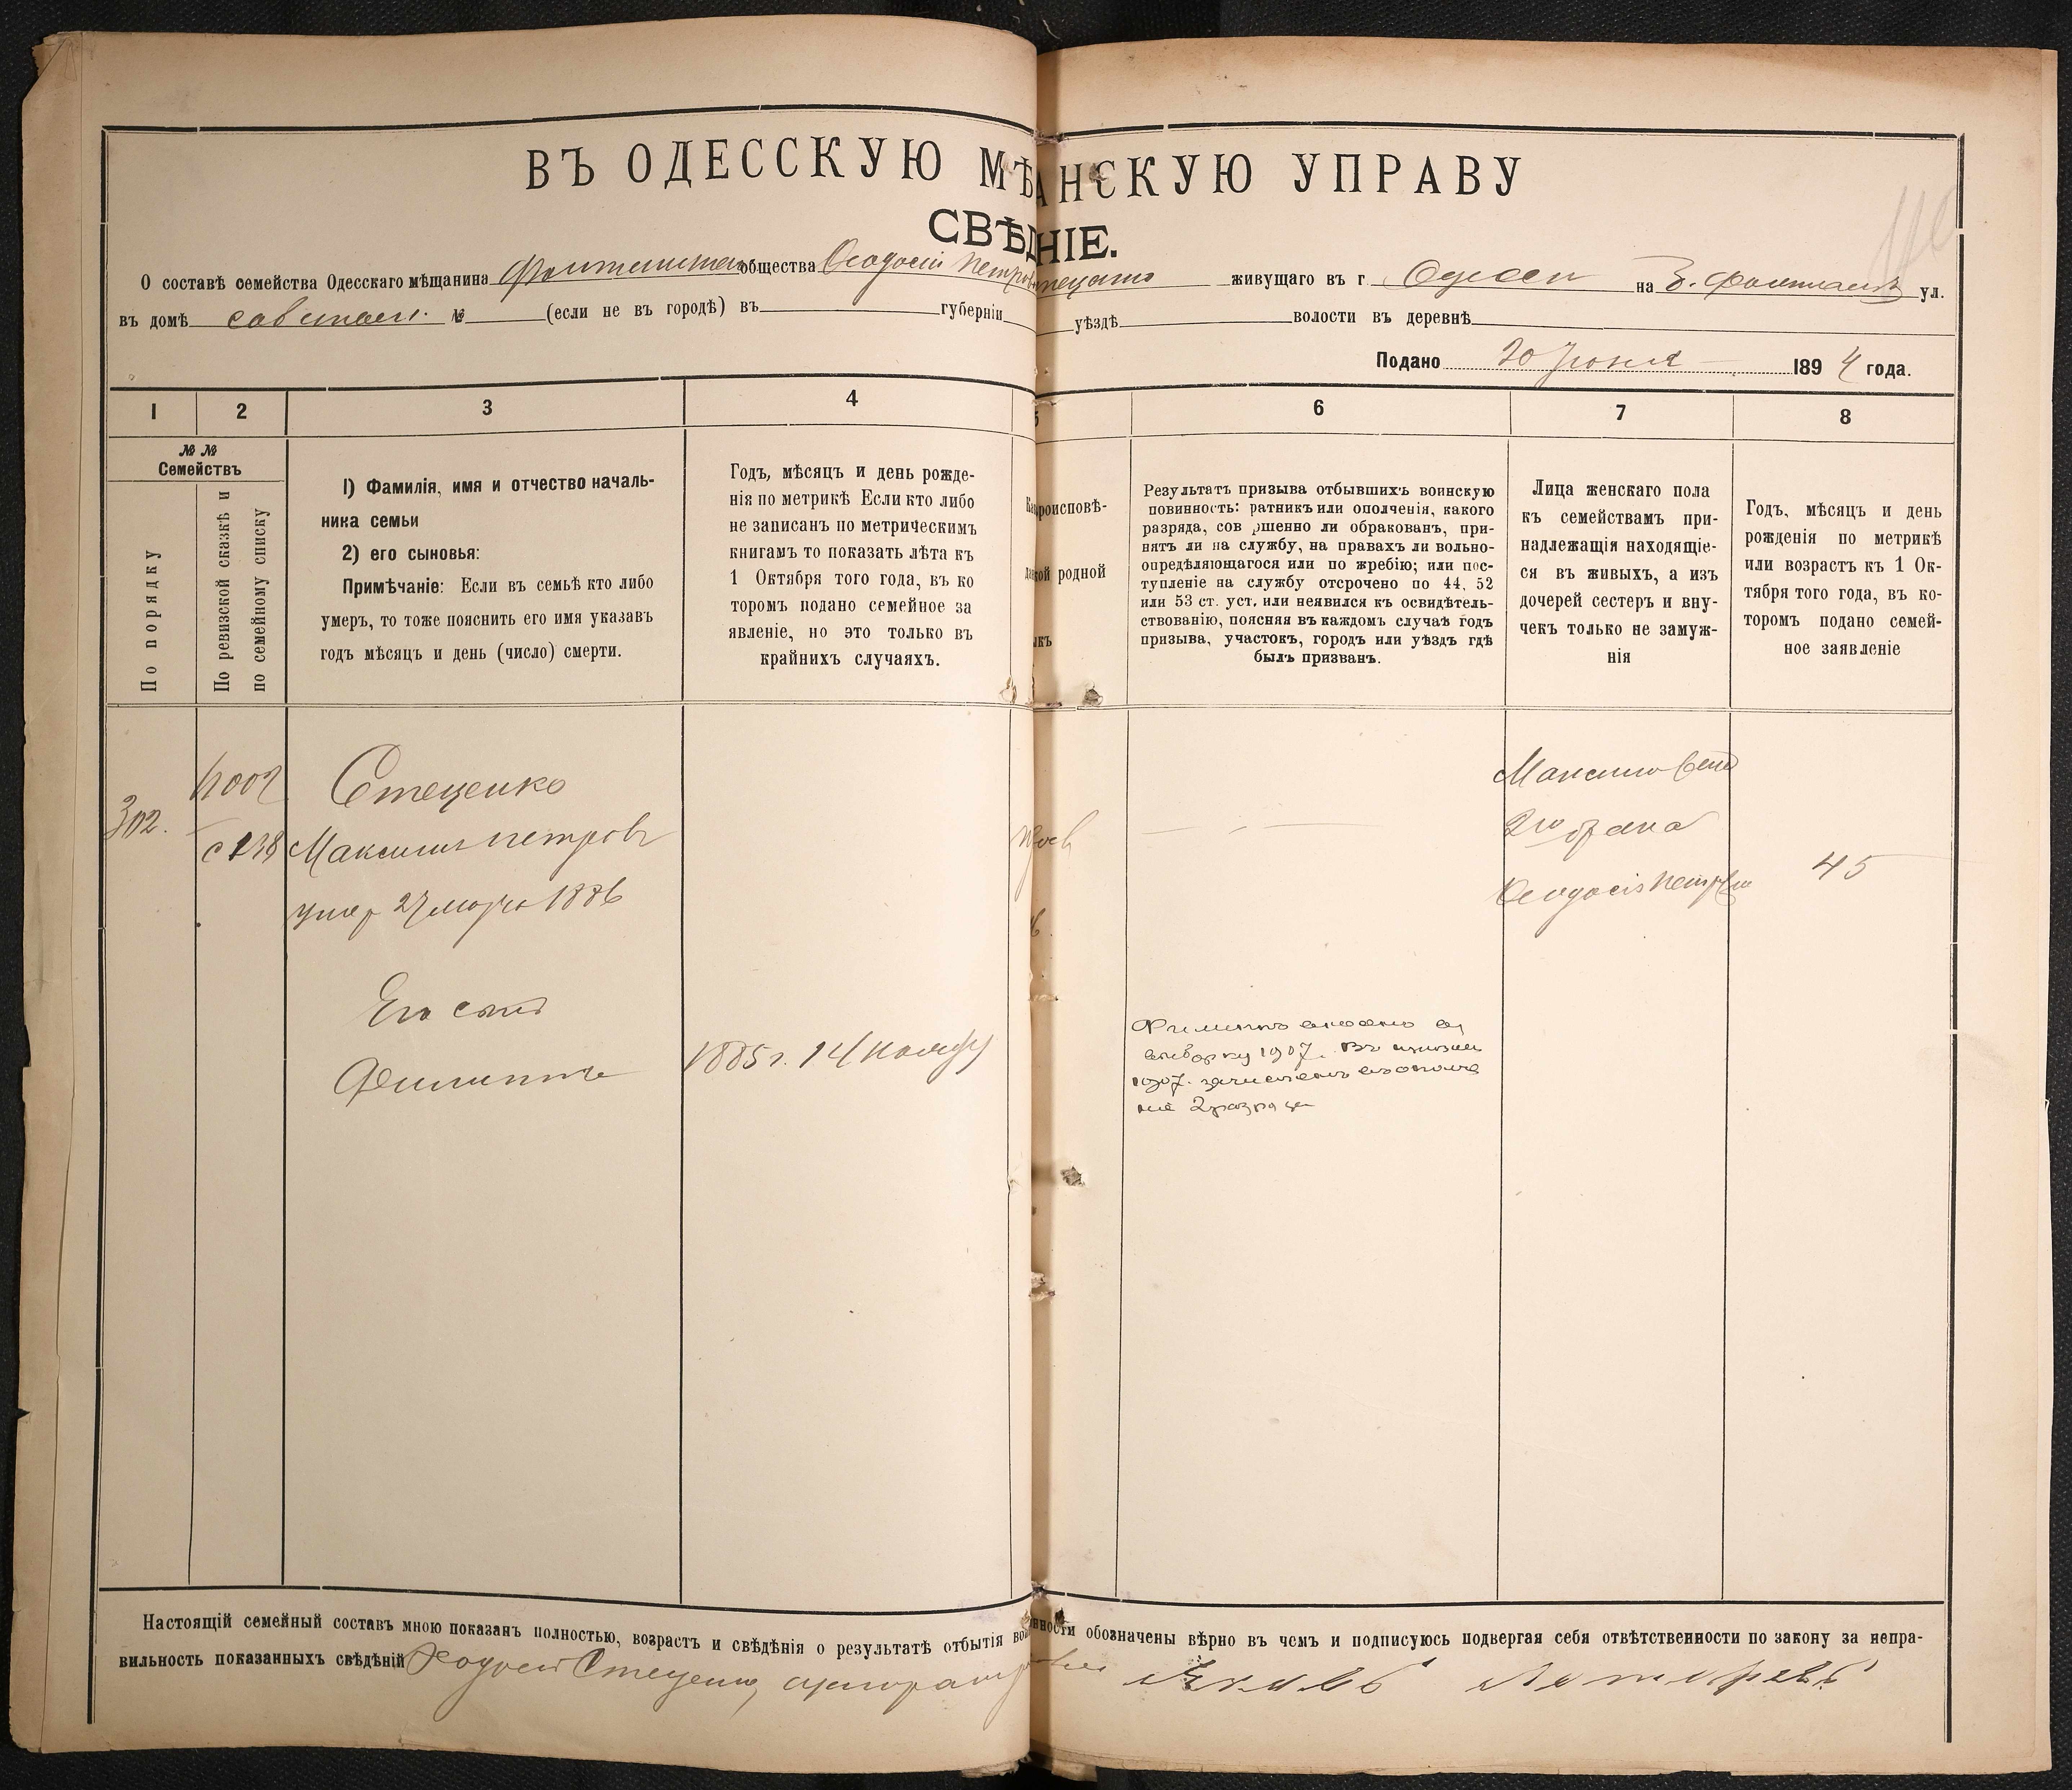 ВЪ ОДЕССКУЮ МѢ АНСКУЮ УПРАВУ
СВѢД НІЕ.
О составѣ семейства Одесскаго мѣщанина общества Ѳеодосій Петров живущаго въ г. Одессѣ на Б. Фонтанѣ ул.
въ домѣ собствен. № (если не въ городѣ) въ губерніи уѣздѣ волости въ деревнѣ
Подано 20 Іюня 1894 года.
1 2 3 4 5 6 7 8
№ № Семействъ
По порядку
По ревизской сказкѣ и
по семейному списку
1) Фамилія, имя и отчество началь-
ника семьи
2) его сыновья:
Примѣчаніе: Если въ семьѣ кто либо
умеръ, то тоже пояснить его имя указавъ
годъ мѣсяцъ и день (число) смерти.
Годъ, мѣсяцъ и день рожде-
нія по метрикѣ Если кто либо
не записанъ по метрическимъ
книгамъ то показать лѣта къ
1 Октября того года, въ ко
торомъ подано семейное за
явленіе, но это только въ
крайнихъ случаяхъ.
роисповѣ-
кой родной
Результатъ призыва отбывшихъ воинскую
повинность: ратникъ или ополченія, какого
разряда, сов ршенно ли обракованъ, при-
нятъ ли на службу, на правахъ ли вольно-
опредѣляющагося или по жребію; или пос-
тупленіе на службу отсрочено по 44, 52
или 53 ст. уст. или неявился къ освидѣтель-
ствованію, поясняя въ каждомъ случаѣ годъ
призыва, участокъ, городъ или уѣздъ гдѣ
былъ призванъ.
Лица женскаго пола
къ семействамъ при-
надлежащія находящіе-
ся въ живыхъ, а изъ
дочерей сестеръ и вну-
чекъ только не замуж-
нія
Годъ, мѣсяцъ и день
рожденія по метрикѣ
или возрастъ къ 1 Ок-
тября того года, въ ко-
торомъ подано семей-
ное заявленіе
302.
с 138
Стеценко
Максимъ Петровъ
умер 27 марта 1886
Его сынъ
Филиппъ
1885 г. 14 Ноября
Филиппъ
1907. Въ
1907. зачисленъ въ ополче
ніе 2 разряда
Максима
2го брака
Ѳеодосія Петрова
45
Настоящій семейный составъ мною показанъ полностью, возрастъ и свѣдѣнія о результатѣ отбытія во нности обозначены вѣрно въ чемъ и подписуюсь подвергая себя отвѣтственности по закону за непра-
вильность показанныхъ свѣдѣній Ѳеодосій Стеценко, Яковъ